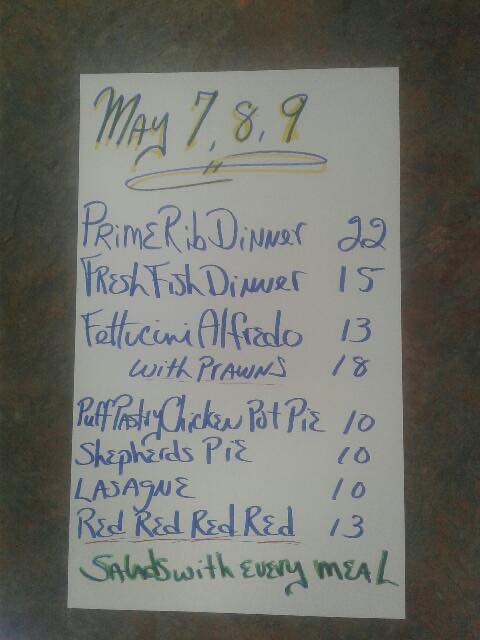 May 7, 8, 9
PrimE Rib Dinner 22
FResh Fish Dinner 15
Fettucini Alfredo 13
with PRAWNS 18
Puff Pastry Chicken Pot PiE 10
Shepherds PiE 10
LASAgNE 10
REd REd REd REd 13
Salads with EvERy mEAL